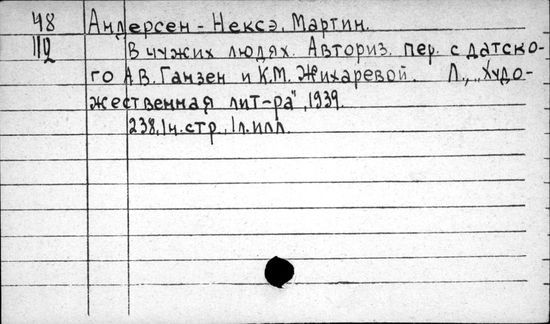 48 Андерсен-Нексэ, Мартин.
112 В чужих людях. Авториз. пер. с датско-
го А.В. Ганзен и К.М. Жихаревой. Л., „Худо-
жественная лит-ра", 1939.
238, 1ч. стр., 1л. илл.